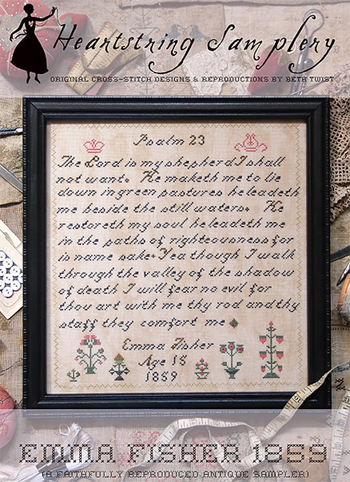 Heartstring Samplery
ORIGINAL CROSS-STITCH DESIGNS & REPRODUCTIONS BY BETH TWIST
Psalm 23
The Lord is my shepherd I shall
not want. He maketh me to lie
down in green pastures he leadeth
me beside the still waters. He
restoreth my soul he leadeth me
in the paths of righteousness for
is name sake. Yea though I walk
through the valley of the shadow
of death I will fear no evil for
thou art with me thy rod and thy
staff they comfort me
Emma Fisher
Age 18
1859
EMMA FISHER 1859
(A FAITHFULLY REPRODUCED ANTIQUE SAMPLER)